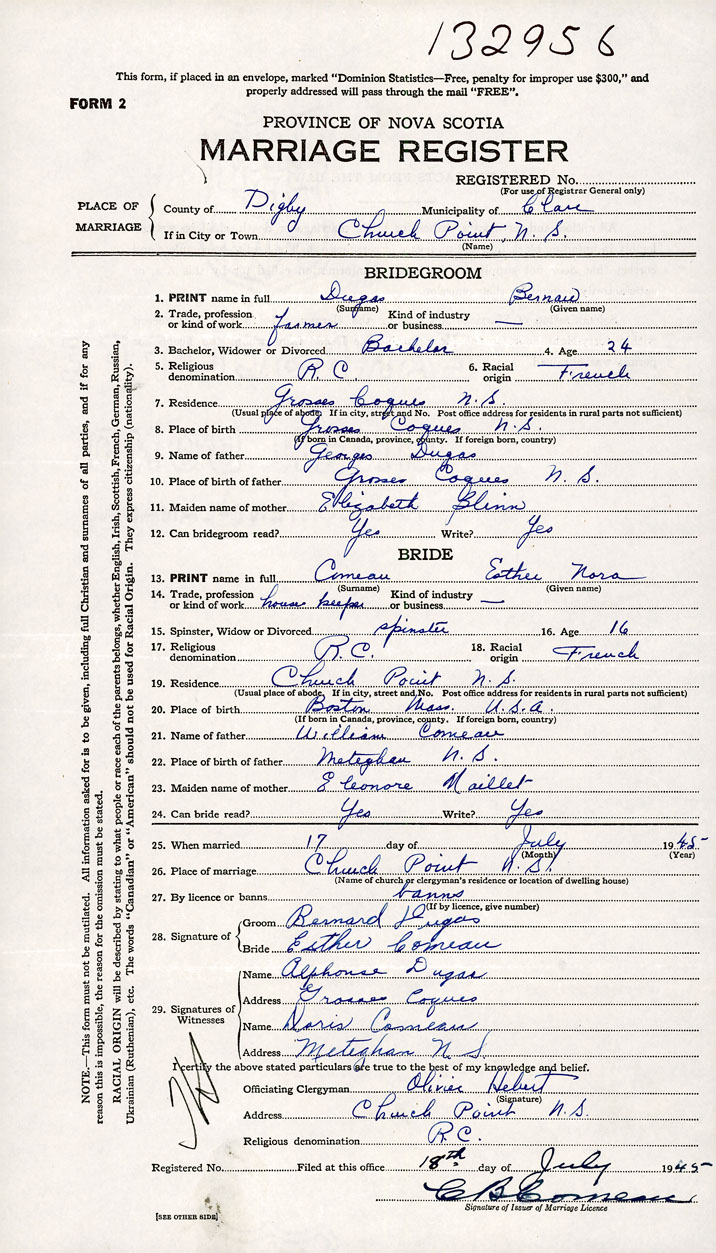 132956
This form, if placed in an envelope, marked "Dominion Statistics—Free, penalty for improper use $300," and
properly addressed will pass through the mail "FREE".
FORM 2
PROVINCE OF NOVA SCOTIA
MARRIAGE REGISTER
REGISTERED No.
(For use of Registrar General only)
PLACE OF MARRIAGE
County of Digby Municipality of Clare
If in City or Town Church Point, N. S.
(Name)
BRIDEGROOM
1. PRINT name in full Dugas Bernard
(Surname) (Given name)
2. Trade, profession or kind of work farmer Kind of industry or business —
3. Bachelor, Widower or Divorced Bachelor 4. Age 24
5. Religious denomination R C 6. Racial origin French
7. Residence Grosses Coques N. S.
(Usual place of abode. If in city, street and No. Post office address for residents in rural parts not sufficient)
8. Place of birth Grosses Coques N. S.
(If born in Canada, province, county. If foreign born, country)
9. Name of father Georges Dugas
10. Place of birth of father Grosses Coques N. S.
11. Maiden name of mother Elizabeth Blinn
12. Can bridegroom read? Yes Write? Yes
BRIDE
13. PRINT name in full Comeau Esther Nora
(Surname) (Given name)
14. Trade, profession or kind of work house keeper Kind of industry or business —
15. Spinster, Widow or Divorced spinster 16. Age 16
17. Religious denomination R.C. 18. Racial origin French
19. Residence Church Point N. S.
(Usual place of abode. If in city, street and No. Post office address for residents in rural parts not sufficient)
20. Place of birth Boston Mass. U.S.A.
(If born in Canada, province, county. If foreign born, country)
21. Name of father William Comeau
22. Place of birth of father Meteghan N. S.
23. Maiden name of mother Eleonore Maillet
24. Can bride read? Yes Write? Yes
25. When married 17 day of July 1945
(Month) (Year)
26. Place of marriage Church Point N. S.
(Name of church or clergyman's residence or location of dwelling house)
27. By licence or banns banns
(If by licence, give number)
28. Signature of
Groom Bernard Dugas
Bride Esther Comeau
29. Signatures of Witnesses
Name Alphonse Dugas
Address Grosses Coques
Name Doris Comeau
Address Meteghan N S
I certify the above stated particulars are true to the best of my knowledge and belief.
Officiating Clergyman Olivier Hebert
(Signature)
Address Church Point N.S.
Religious denomination R.C.
Registered No. Filed at this office 18th day of July 1945
C B Comeau
Signature of Issuer of Marriage Licence
[SEE OTHER SIDE]
NOTE.—This form must not be mutilated. All information asked for is to be given, including full Christian and surnames of all parties, and if for any
reason this is impossible, the reason for the omission must be stated.
RACIAL ORIGIN will be described by stating to what people or race each of the parents belongs, whether English, Irish, Scottish, French, German, Russian,
Ukrainian (Ruthenian), etc. The words "Canadian" or "American" should not be used for Racial Origin. They express citizenship (nationality).